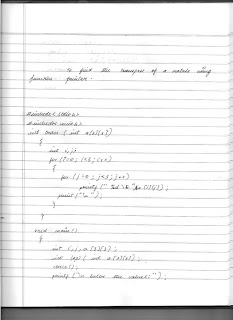 to find the transpose of a matrix using
function pointer.
#include<stdio.h>
#include<conio.h>
int (int a[3][3])
{
int i,j;
for (i=0; i<3; i++)
{
for (j=0; j<3; j++)
printf(" %d \t", a[j][i]);
printf("\n");
}
}
void main()
{
int i,j, a[3][3];
int (*p)(int a[3][3]);
clrscr();
printf("\n Enter the values:");